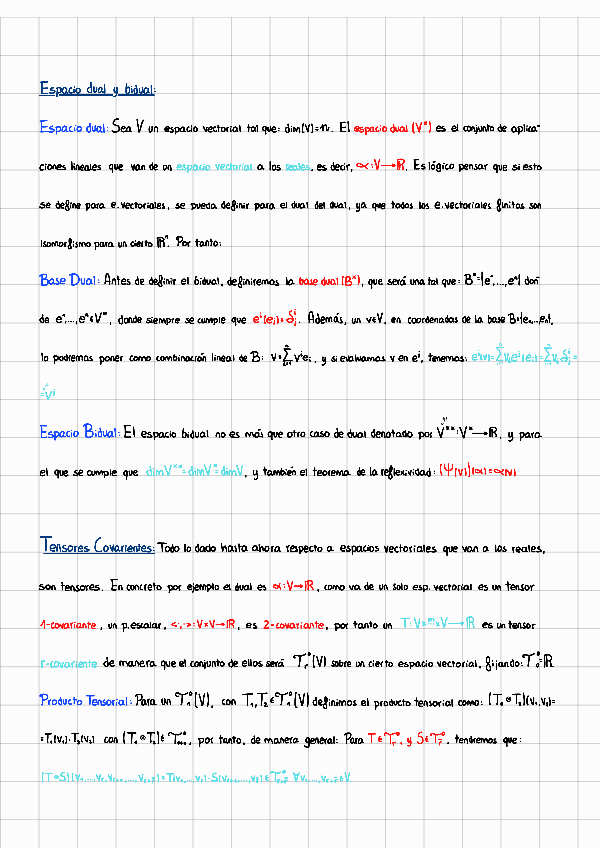 Espacio dual y bidual:
Espacio dual: Sea V un espacio vectorial tal que: dim(V)=n. El espacio dual (V*) es el conjunto de aplica-
ciones lineales que van de un espacio vectorial a los reales, es decir, α:V→ℝ. Es lógico pensar que si esto
se define para e.vectoriales, se pueda definir para el dual del dual, ya que todos los e.vectoriales finitos son
isomorfismo para un cierto ℝⁿ. Por tanto:
Base Dual: Antes de definir el bidual, definiremos la base dual (B*), que será una tal que: B*={e¹,...,eⁿ} don
de e¹,...,eⁿ∈V*, donde siempre se cumple que eⁱ(eⱼ)=δⁱⱼ. Además, un v∈V, en coordenadas de la base B={e₁,...,eₙ},
lo podremos poner como combinación lineal de B: v=∑vⁱeᵢ, y si evaluamos v en eⁱ, tenemos:
=vʲ
Espacio Bidual: El espacio bidual no es más que otro caso de dual denotado por V**:V*→ℝ, y para
el que se cumple que dimV**=dimV*=dimV, y también el teorema de la reflexividad: (Ψ(v))(α)=α(v)
Tensores Covarientes: Todo lo dado hasta ahora respecto a espacios vectoriales que van a los reales,
son tensores. En concreto por ejemplo el dual es α:V→ℝ, como va de un solo esp. vectorial es un tensor
1-covariante, un p.escalar, <·,·>:V×V→ℝ, es 2-covariante, por tanto un T:V×...×V→ℝ es un tensor
r-covariente de manera que el conjunto de ellos será 𝒯ᵣ⁰(V) sobre un cierto espacio vectorial, fijando: 𝒯₀⁰=ℝ
Producto Tensorial: Para un 𝒯₁⁰(V), con T₁,T₂∈𝒯₁⁰(V) definimos el producto tensorial como: (T₁⊗T₂)(v₁,v₂)=
=T₁(v₁)·T₂(v₂) con (T₁⊗T₂)∈ , por tanto, de manera general: Para T∈𝒯ᵣ⁰ y S∈ , tendremos que: